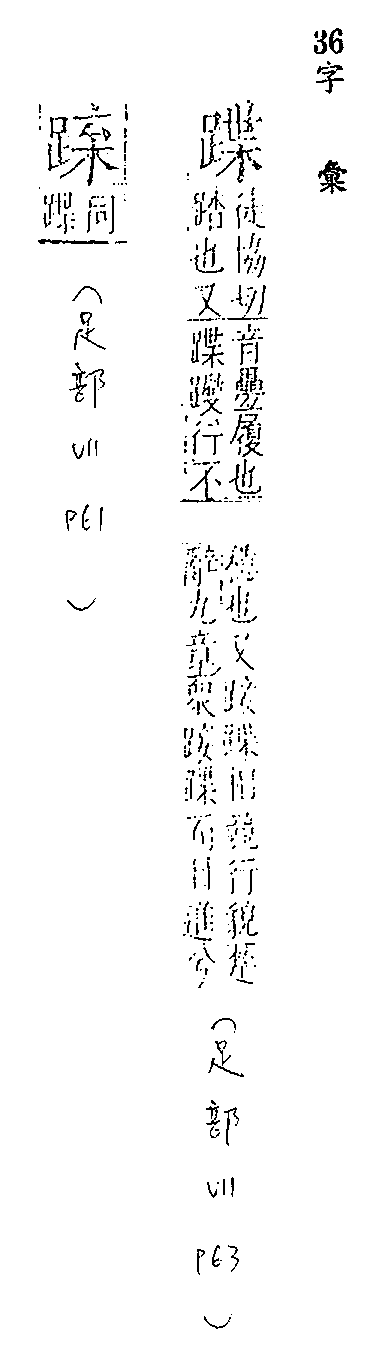 36字彙
蹀
徒協切音疊履也
踏也又蹀躞行不
也又踥蹀 行貌楚
辭九章衆踥蹀而日進兮
(足部 VII P63)
同蹀
(足部 VII P61)